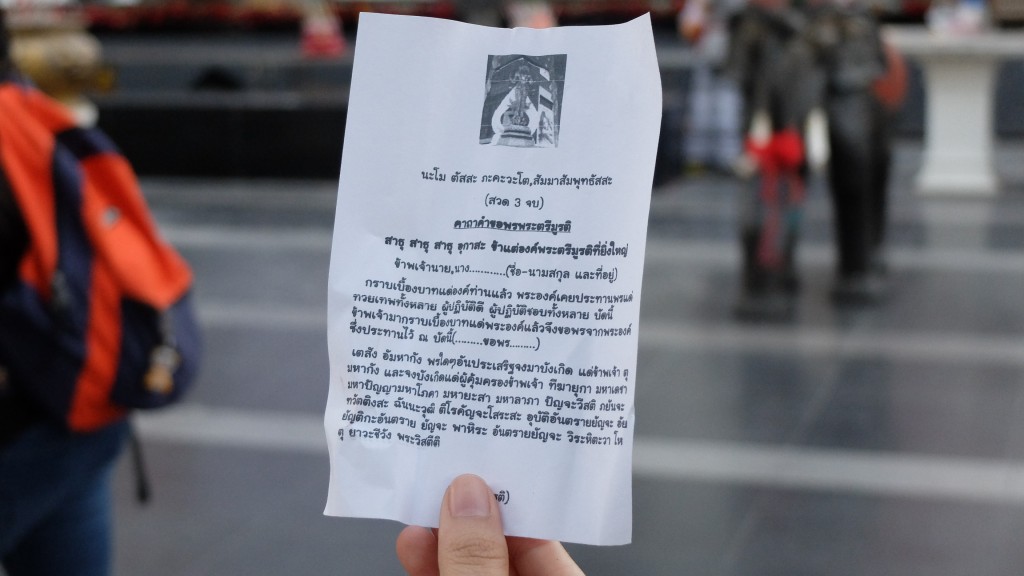 นะโม ตัสสะ ภะคะวะโต,สัมมาสัมพุทธัสสะ
(สวด 3 จบ)
คาถาคำขอพรพระตรีมูรติ
สาธุ สาธุ สาธุ อุกาสะ ข้าแต่องค์พระตรีมูรติที่ยิ่งใหญ่
ข้าพเจ้านาย,นาง...........(ชื่อ-นามสกุล และที่อยู่)
กราบเบื้องบาทแด่องค์ท่านแล้ว พระองค์เคยประทานพรแด่
ทวยเทพทั้งหลาย ผู้ปฏิบัติดี ผู้ปฏิบัติชอบทั้งหลาย บัดนี้
ข้าพเจ้ามากราบเบื้องบาทแด่พระองค์แล้วจึงขอพรจากพระองค์
ซึ่งประทานไว้ ณ บัดนี้(.........ขอพร........)
เตสัง อัมหากัง พรใดๆอันประเสริฐจงมาบังเกิด แด่ข้าพเจ้า ตุ
มหากัง และจงบังเกิดแด่ผู้คุ้มครองข้าพเจ้า ทีฆายุกา มหาเตชา
มหาปัญญามหาโภคา มหายะสา มหาลาภา ปัญจะวีสติ ภยันจะ
ทวัตติงสะ ฉันนะวุติ ตีโรคัญจะโสระสะ อุปัติอันตรายยัญจะ อัย
ยัญติกะอันตราย ยัญจะ พาหิระ อันตรายยัญจะ วิระหิตะวา โห
ตุ ยาวะชีวัง พระวิสตีติ